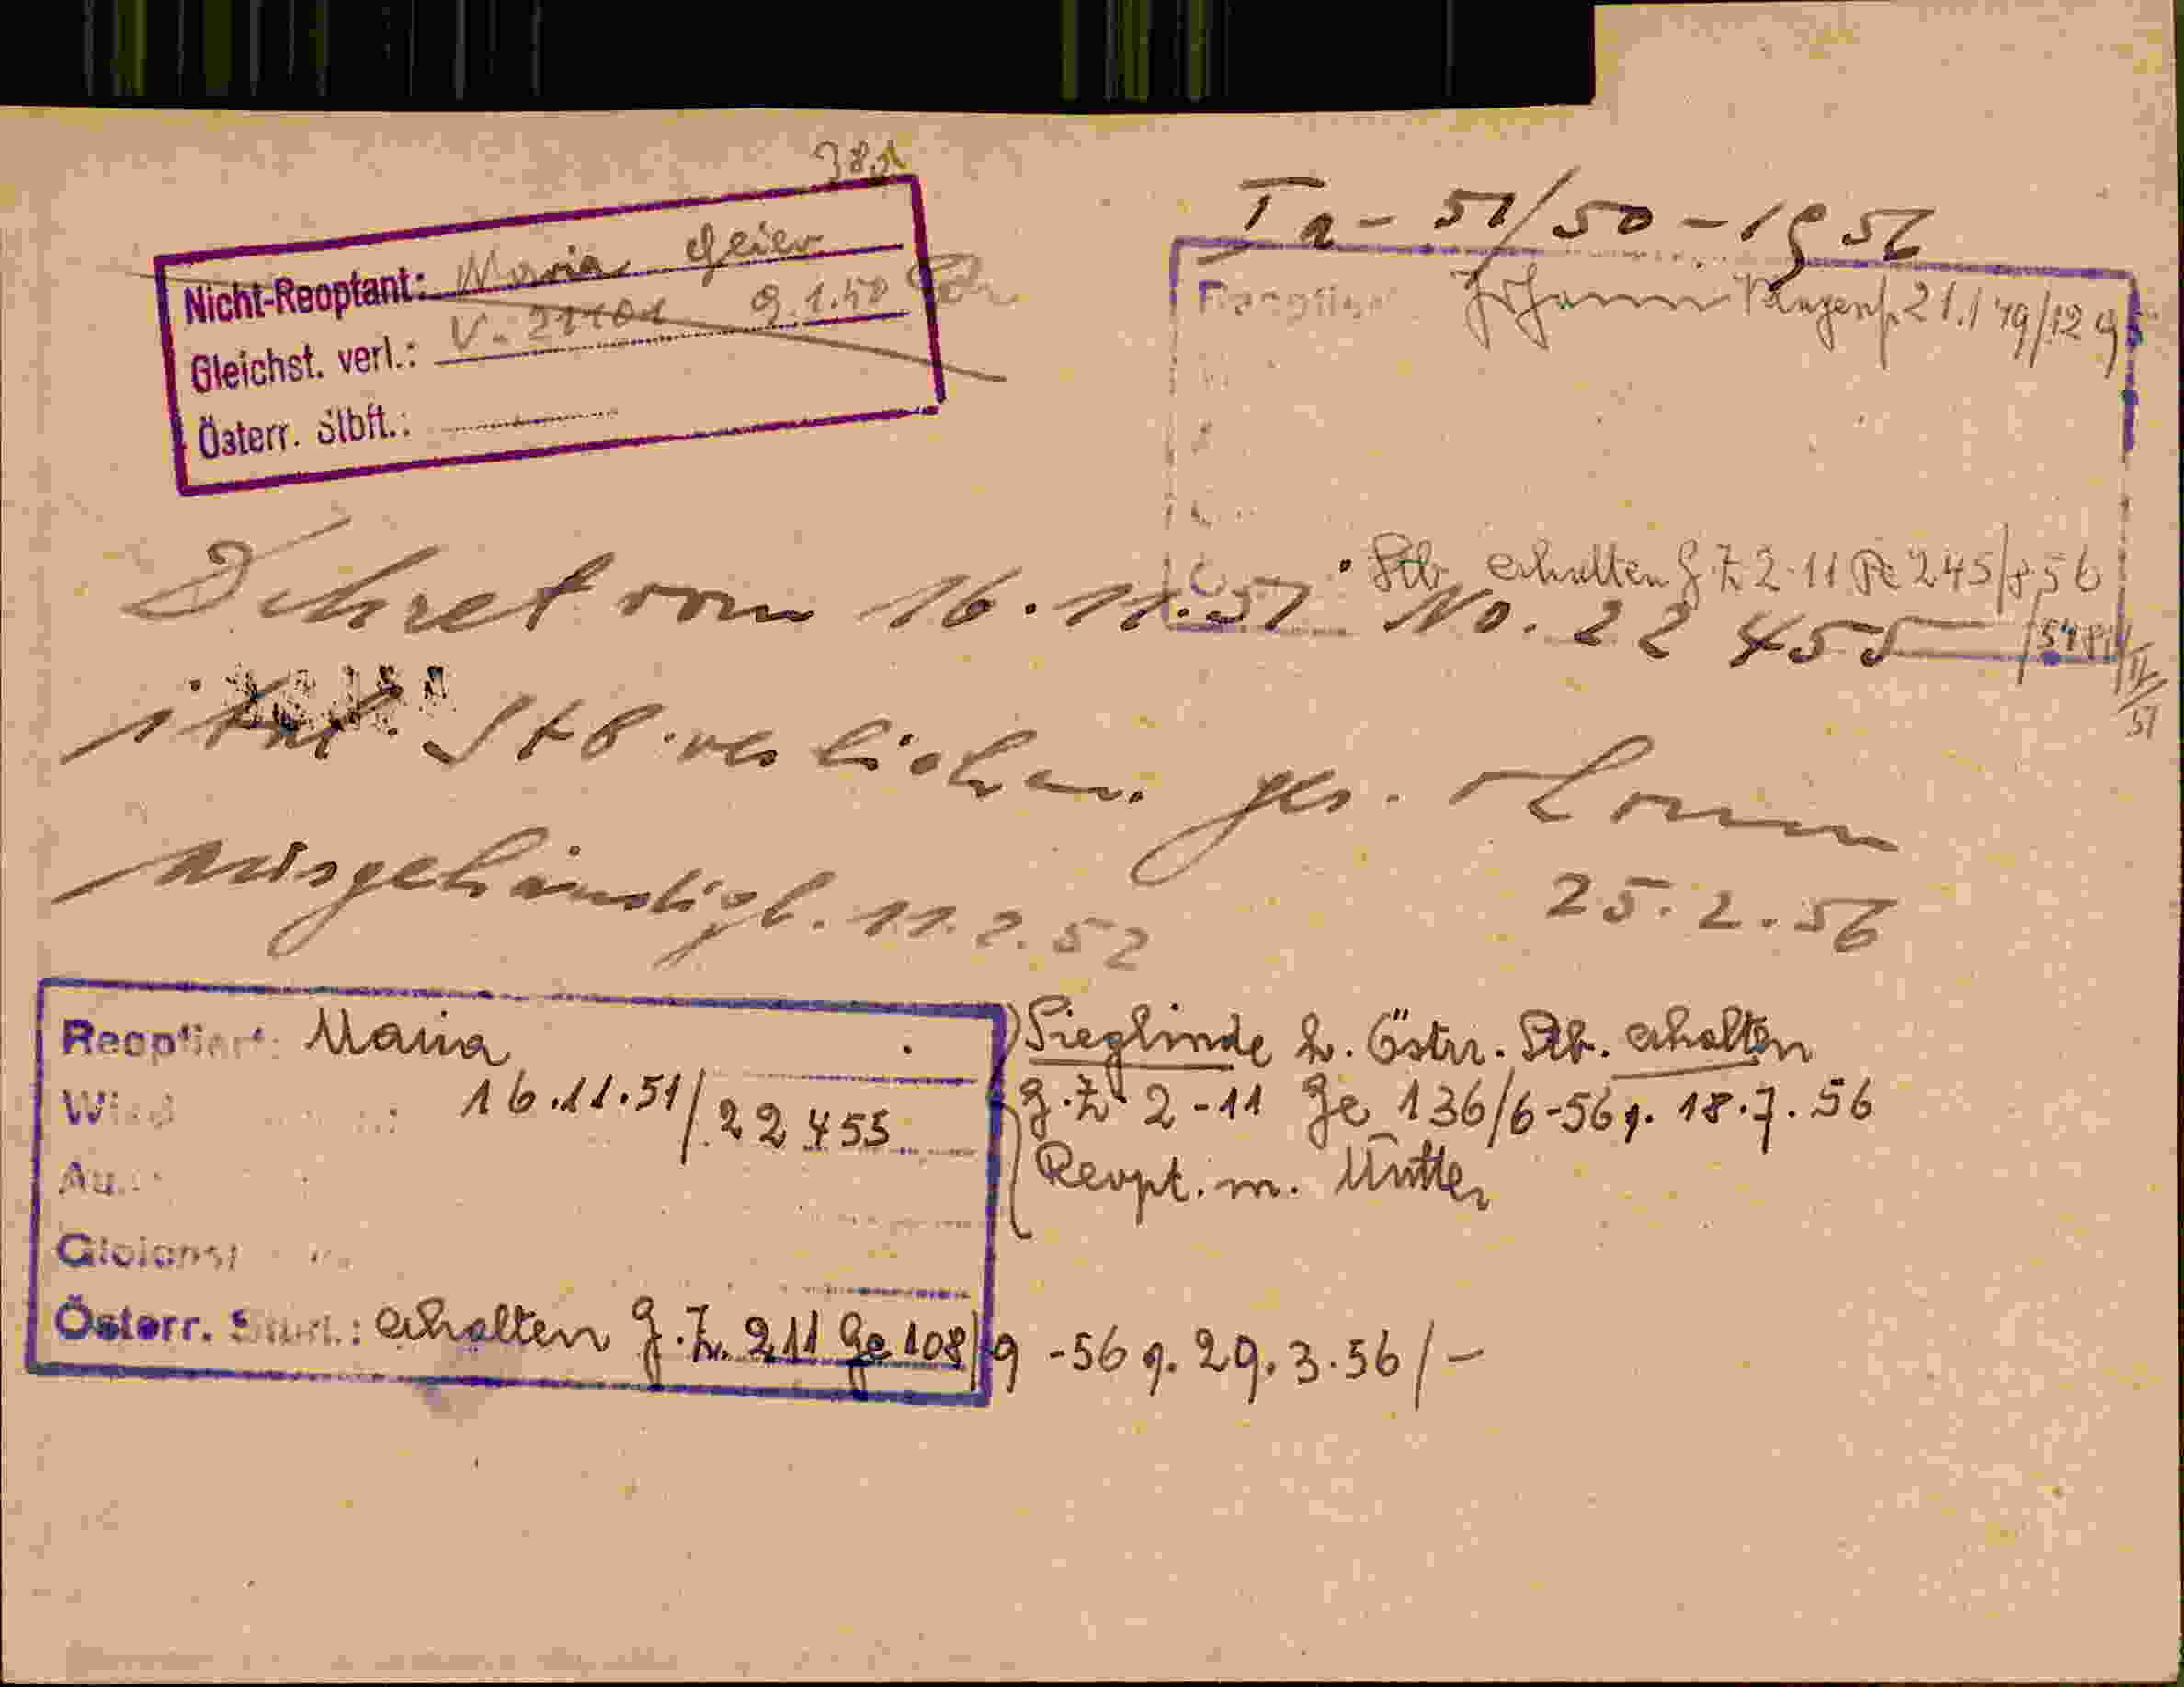 Nicht-Reoptant: Maria Geier
Gleichst. verl.: V. 21101 9.1.50
Österr. Stbft.:
Ia - 51/50 - 1956
Johann Klagenf. 21.1 49/129
Stb. erhalten G.Z 2-11 Pe 245/8 56
Dekret vom 16.11.51 No. 22 455
ital. Stb. verliehen. ges. Rom
ausgehändigt. 11.2.52
25.2.56
Reoptiert: Maria
16.11.51/22455
Gleichst
Österr. Stbft.: erhalten G.Z. 2 11 Ge 108/9 -56 v. 29.3.56/-
Sieglinde h. Östrr. Stb. erhalten
G.Z 2-11 Ge 136/6-56 v. 18.7.56
Reopt. m. Mutter